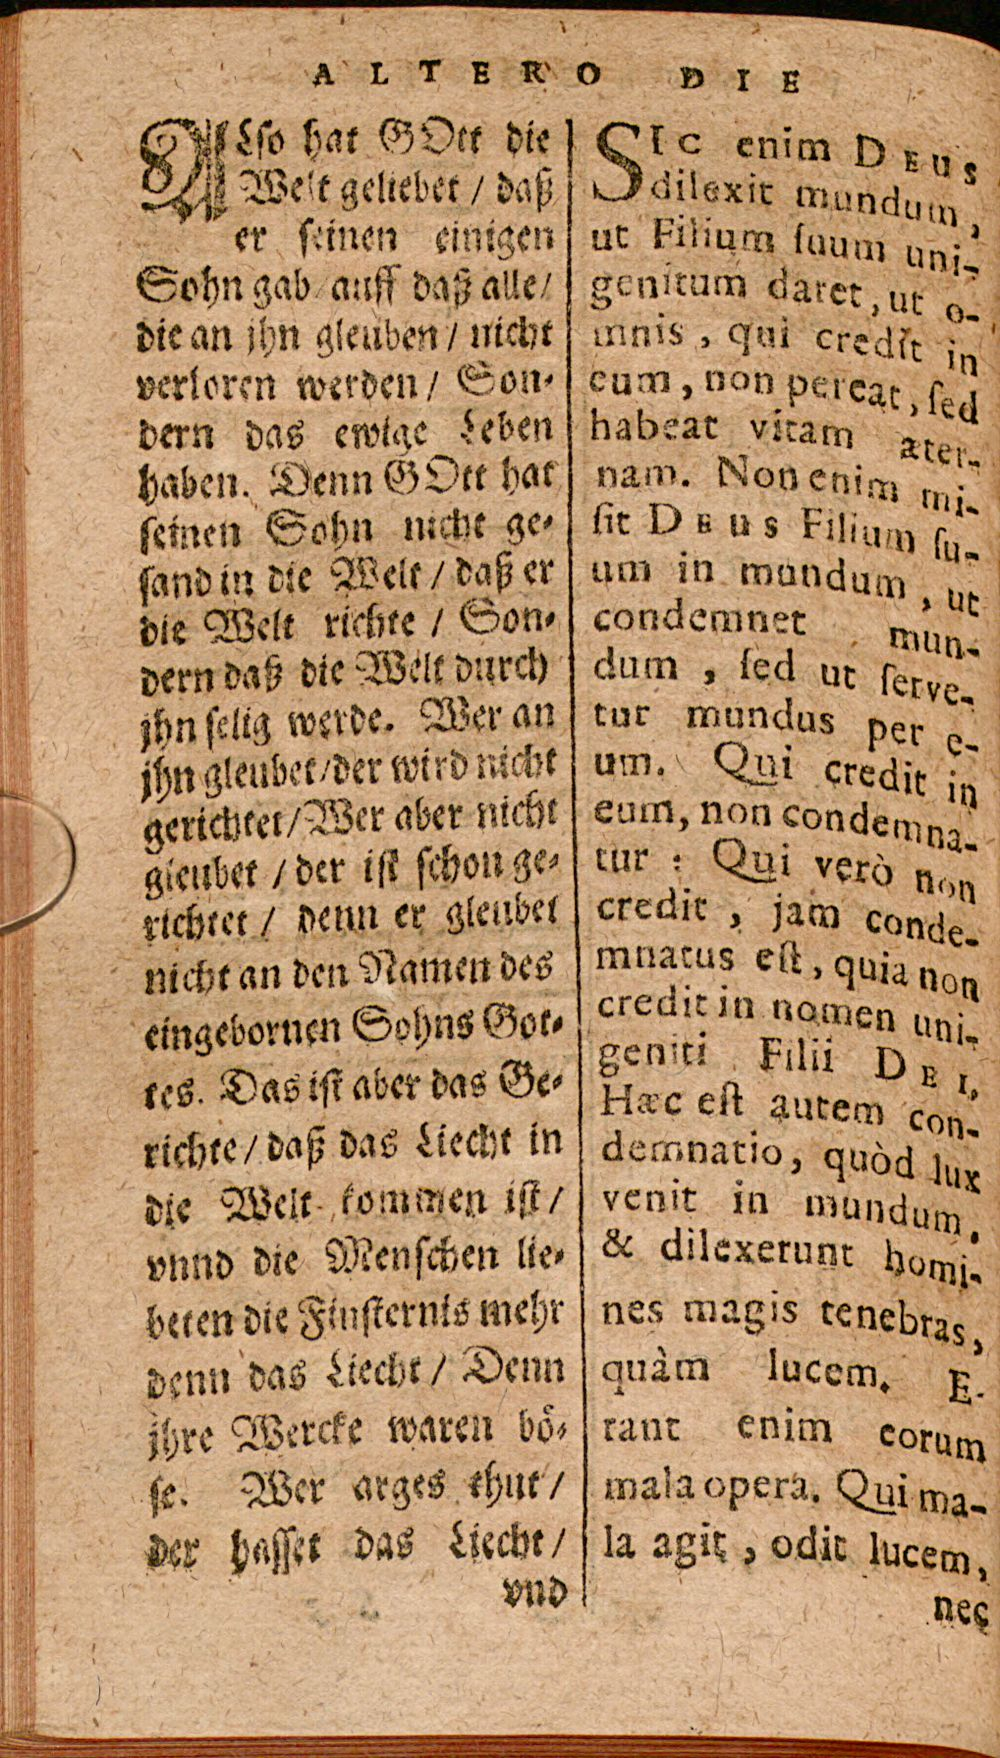 ALTERO DIE
ALso hat GOtt die
Welt geliebet / daß
er seinen einigen
Sohn gab / auff daß alle /
die an jhn gleuben / nicht
verloren werden / Son-
dern das ewige Leben
haben. Denn GOtt hat
seinen Sohn nicht ge-
sand in die Welt / daß er
die Welt richte / Son-
dern daß die Welt durch
jhn selig werde. Wer an
jhn gleubet / der wird nicht
gerichtet / Wer aber nicht
gleubet / der ist schon ge-
richtet / denn er gleubet
nicht an den Namen des
eingebornen Sohns Got-
tes. Das ist aber das Ge-
richte / daß das Liecht in
die Welt kommen ist /
vnnd die Menschen lie-
beten die Finsternis mehr
denn das Liecht / Denn
jhre Wercke waren bö-
se. Wer arges thut /
der hasset das Liecht /
vnd
SIC enim DEUS
dilexit mundum,
ut Filium suum uni-
genitum daret, ut o-
mnis, qui credit in
eum, non pereat, sed
habeat vitam æter-
nam. Non enim mi-
sit DEUS Filium su-
um in mundum, ut
condemnet mun-
dum, sed ut serve-
tur mundus per e-
um. Qui credit in
eum, non condemna-
tur: Qui verò non
credit, jam conde-
mnatus est, quia non
credit in nomen uni-
geniti Filii DEI.
Hæc est autem con-
demnatio, quòd lux
venit in mundum,
& dilexerunt homi-
nes magis tenebras,
quàm lucem. E-
rant enim eorum
mala opera. Qui ma-
la agit, odit lucem,
nec